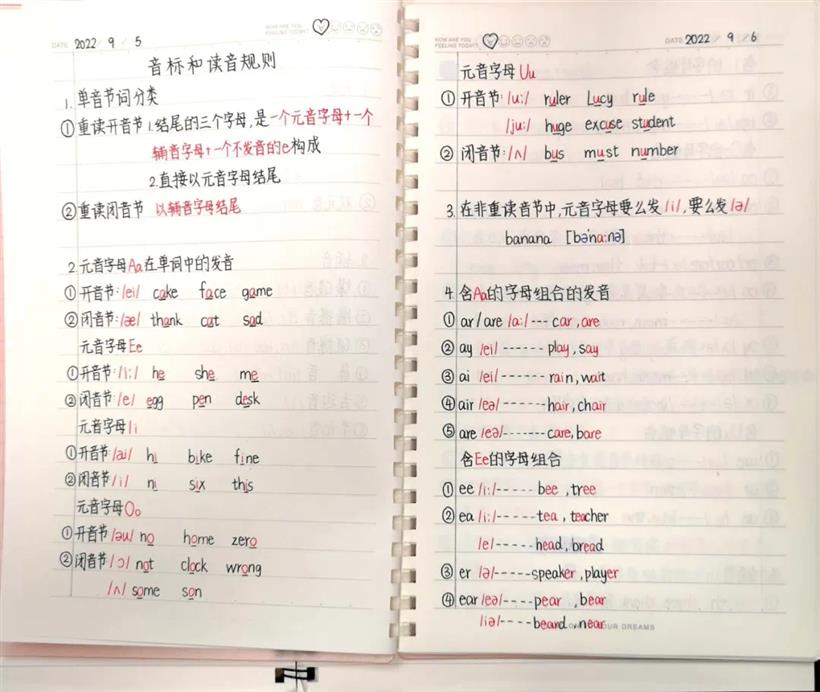 HOW ARE YOU
FEELING TODAY?
DATE 2022 / 9 / 5
音标和读音规则
1. 单音节词分类
① 重读开音节 1.结尾的三个字母,是一个元音字母+一个
辅音字母+一个不发音的e构成
2.直接以元音字母结尾
② 重读闭音节 以辅音字母结尾
2. 元音字母Aa在单词中的发音
① 开音节:/ei/ cake face game
② 闭音节:/æ/ thank cat sad
元音字母Ee
① 开音节:/i:/ he she me
② 闭音节/e/ egg pen desk
元音字母Ii
① 开音节/ai/ hi bike fine
② 闭音节/i/ ni six this
元音字母Oo
① 开音节/əu/ no home zero
② 闭音节/ɔ/ not clock wrong
/ʌ/ some son
HOW ARE YOU
FEELING TODAY?
DATE 2022 / 9 / 6
元音字母Uu
① 开音节:/u:/ ruler Lucy rule
/ju:/ huge excuse student
② 闭音节:/ʌ/ bus must number
3. 在非重读音节中,元音字母要么发/i/,要么发/ə/
banana [bə'na:nə]
4. 含Aa的字母组合的发音
① ar/are /a:/---car,are
② ay /ei/------play,say
③ ai /ei/------rain,wait
④ air /eə/-----hair,chair
⑤ are /eə/-----care,bare
含Ee的字母组合
① ee /i:/-----bee,tree
② ea /i:/-----tea,teacher
/e/-----head,bread
③ er /ə/-----speaker,player
④ ear /eə/----pear,bear
/iə/-----beard,near
OUR DREAMS